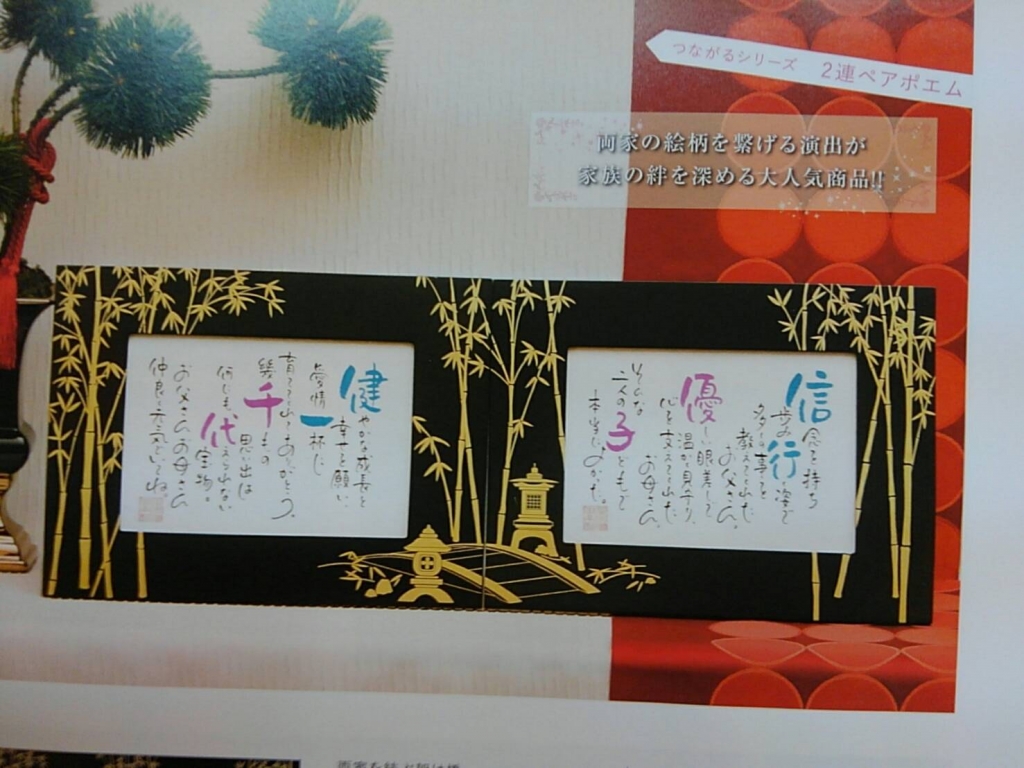 つながるシリーズ 2連ペアポエム
両家の絵柄を繋げる演出が
家族の絆を深める大人気商品!!
信念を持ち
歩み行く姿で
多くの事を
教えてくれた
お父さん。
優しい眼差しで
温かく見守り、
心を支えてくれた
お母さん。
そんな
二人の子どもで
本当によかった。
健やかな成長と
幸せを願い、
愛情一杯に
育ててくれてありがとう。
幾千もの
思い出は
何にも代えられない
宝物。
お父さんお母さん
仲良く元気でいてね。